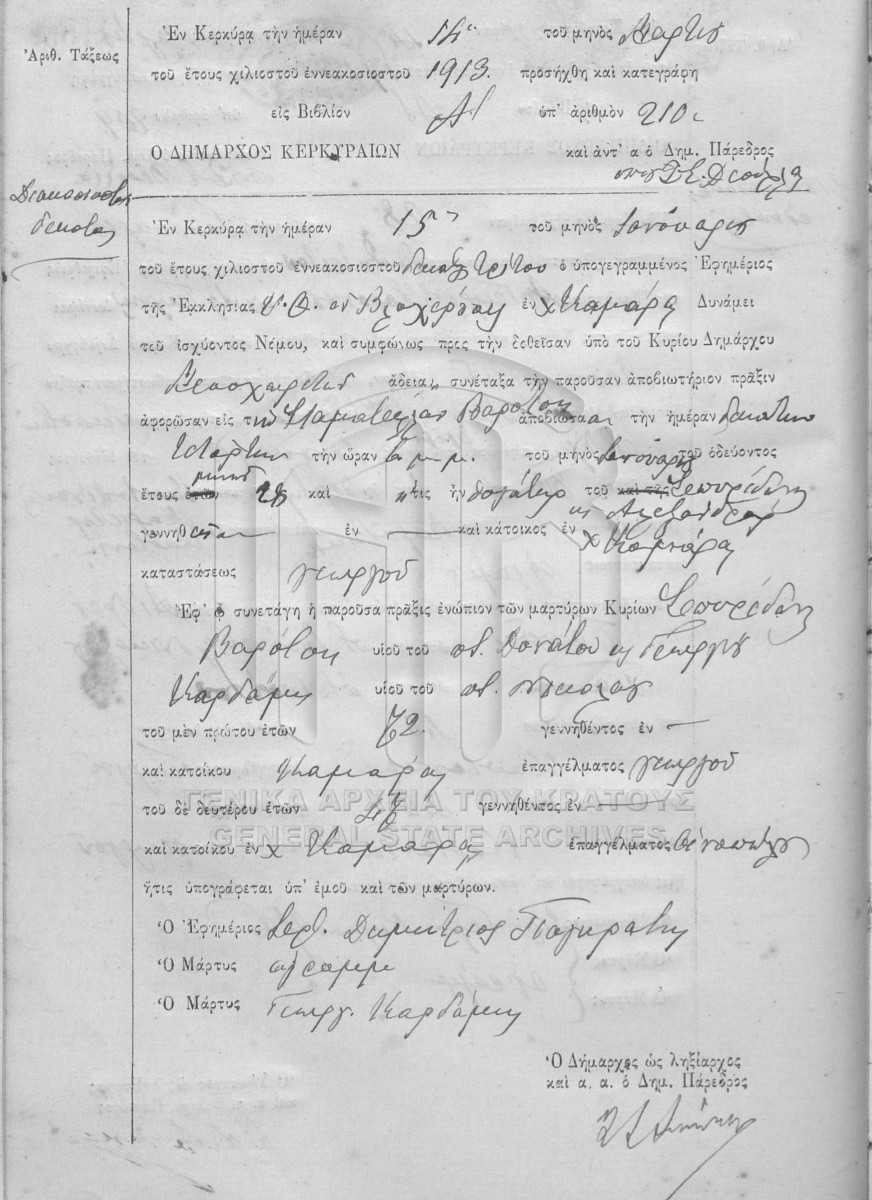 Ἀριθ. Τάξεως
Διακοσιοστὴ
δεκάτη
Ἐν Κερκύρᾳ τὴν ἡμέραν 14 τοῦ μηνὸς Μαρτίου
τοῦ ἔτους χιλιοστοῦ ἐννεακοσιοστοῦ 1913. προσήχθη καὶ κατεγράφη
εἰς Βιβλίον Α' ὑπ' ἀριθμὸν 210
Ο ΔΗΜΑΡΧΟΣ ΚΕΡΚΥΡΑΙΩΝ καὶ ἀντ' α ὁ Δημ. Πάρεδρος
Ἐν Κερκύρᾳ τὴν ἡμέραν 15 τοῦ μηνὸς Ἰανουαρίου
τοῦ ἔτους χιλιοστοῦ ἐννεακοσιοστοῦ δεκάτου τρίτου ὁ ὑπογεγραμμένος Ἐφημέριος
τῆς Ἐκκλησίας Υ. Θ. Βλαχερνῶν ἐν χ Καμάρᾳ Δυνάμει
τοῦ ἰσχύοντος Νόμου, καὶ συμφώνως προς τὴν δοθεῖσαν ὑπὸ τοῦ Κυρίου Δημάρχου
ἄδειαν, συνέταξα τὴν παροῦσαν ἀποβιωτήριον πρᾶξιν
ἀφορῶσαν εἰς τὴν Σταματέλλαν Βαρότση ἀποβιώσασα τὴν ἡμέραν δεκάτην
τετάρτην τὴν ὥραν 6 μ.μ. τοῦ μηνὸς Ἰανουαρίου τοῦ ὁδεύοντος
μηνῶν
ἔτους ἐτῶν 28 καὶ ἥτις ἦν θυγάτηρ τοῦ καὶ τῆς Σπυρίδωνος
κ Ἀλεξάνδρας
γεννηθεῖσα — ἐν — καὶ κάτοικος ἐν χ Καμάρᾳ
καταστάσεως γεωργοῦ
Ἐφ' ᾧ συνετάγη ἡ παροῦσα πρᾶξις ἐνώπιον τῶν μαρτύρων Κυρίων Σπυρίδωνος
Βαρότση υἱοῦ τοῦ ποτ. Δονάτου κ Γεωργίου
Καρδάμη υἱοῦ τοῦ ποτ. Νικολάου
τοῦ μὲν πρώτου ἐτῶν 72. γεννηθέντος ἐν —
καὶ κατοίκου Καμάρας ἐπαγγέλματος γεωργοῦ
ΓΕΝΙΚΑ ΑΡΧΕΙΑ ΤΟΥ ΚΡΑΤΟΥΣ
τοῦ δὲ δευτέρου ἐτῶν γεννηθέντος ἐν —
GENERAL STATE ARCHIVES
καὶ κατοίκου ἐν χ Καμάρᾳ ἐπαγγέλματος οἰνοπώλου
ἥτις ὑπογράφεται ὑπ' ἐμοῦ καὶ τῶν μαρτύρων.
Ὁ Ἐφημέριος Ἱερ. Δημήτριος Παγκράτης
Ὁ Μάρτυς ἀγράμμ
Ὁ Μάρτυς Γεωργ. Καρδάμης
Ὁ Δήμαρχος ὡς ληξίαρχος
καὶ α. α. ὁ Δημ. Πάρεδρος